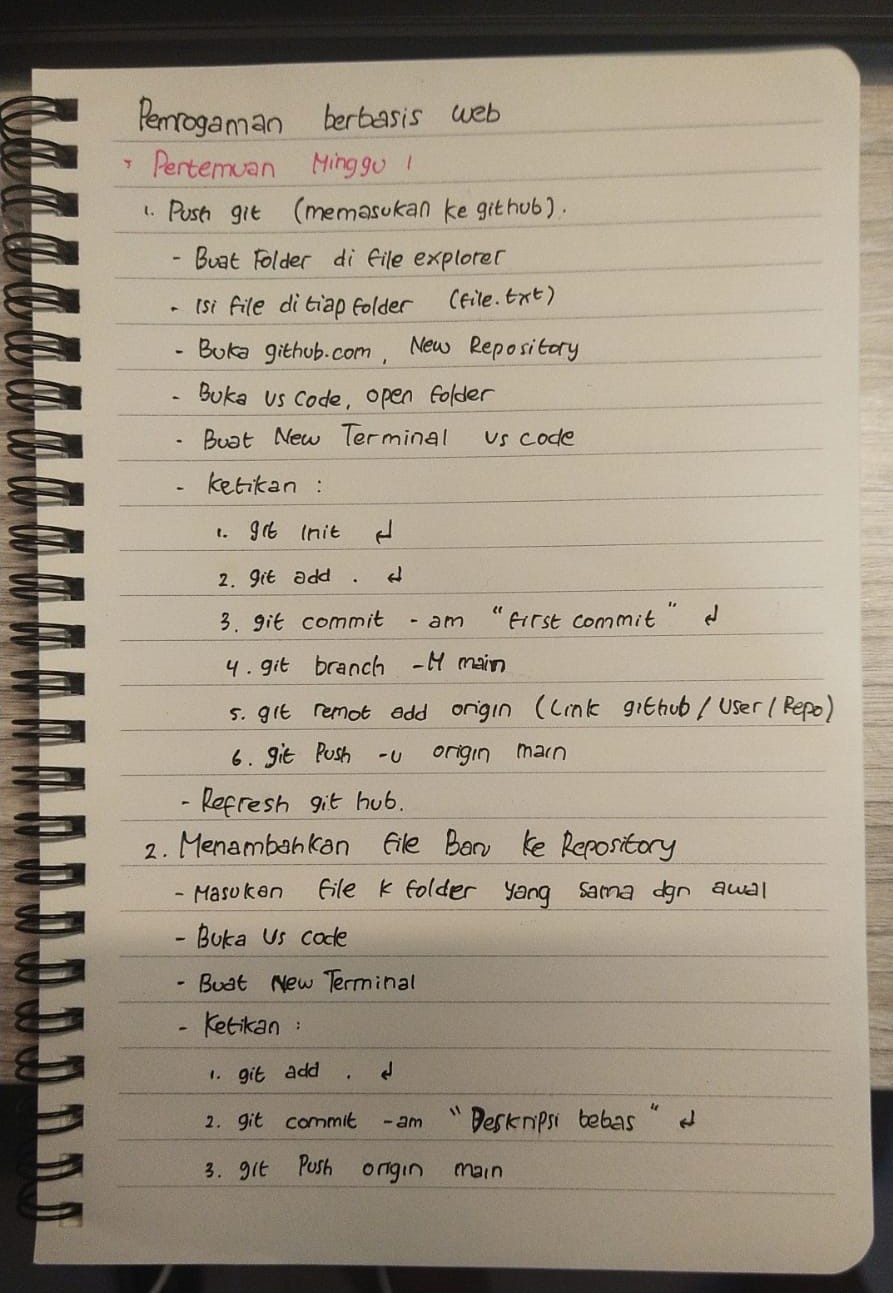 Pemrogaman berbasis web
* Pertemuan Minggu 1
1. Push git (memasukan ke github).
- Buat Folder di file explorer
- Isi file di tiap folder (file.txt)
- Buka github.com, New Repository
- Buka Vs Code, open folder
- Buat New Terminal Vs code
- Ketikan :
1. git init ↵
2. git add . ↵
3. git commit -am "first commit" ↵
4. git branch -M main
5. git remot add origin (Link github/User/Repo)
6. git Push -u origin main
- Refresh git hub.
2. Menambahkan file Baru ke Repository
- Masukan file k folder yang sama dgn awal
- Buka Vs code
- Buat New Terminal
- Ketikan :
1. git add . ↵
2. git commit -am "Deskripsi bebas" ↵
3. git Push origin main